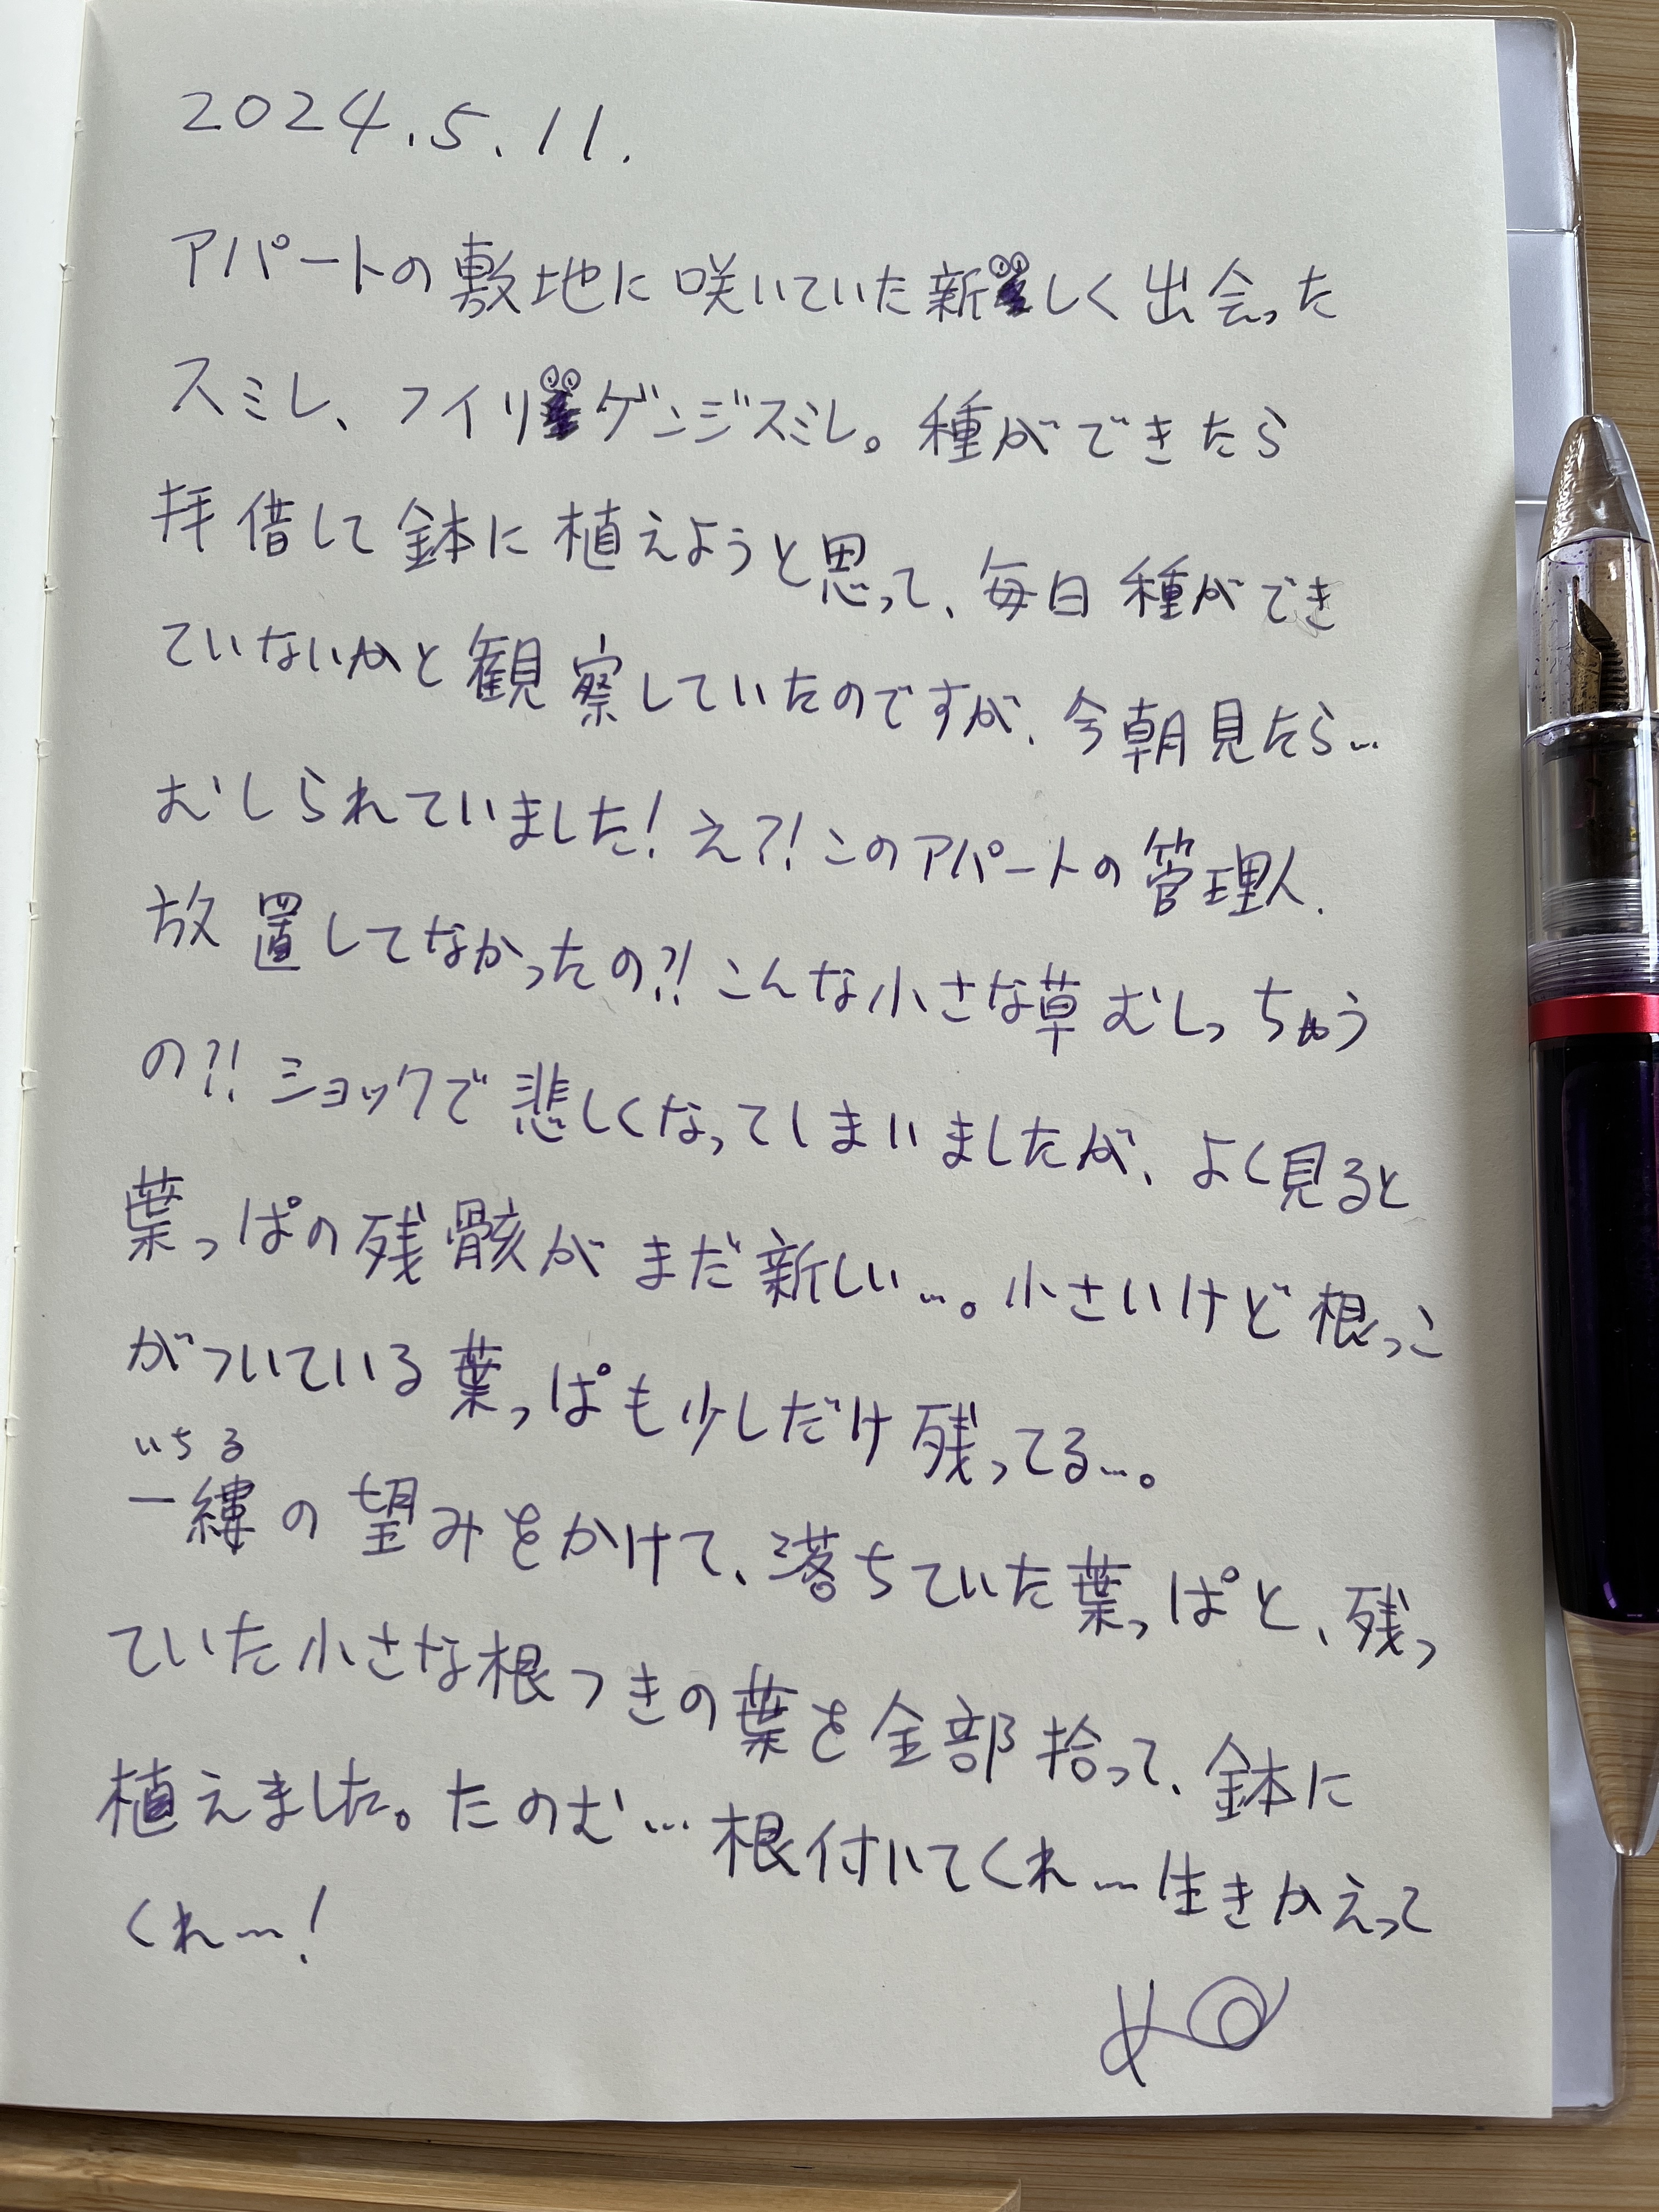 2024.5.11.
アパートの敷地に咲いていた新しく出会った
スミレ、フイリゲンジスミレ。種ができたら
拝借して鉢に植えようと思って、毎日種ができ
ていないかと観察していたのですが、今朝見たら…
むしられていました！え？！このアパートの管理人、
放置してなかったの？！こんな小さな草むしっちゃう
の？！ショックで悲しくなってしまいましたが、よく見ると
葉っぱの残骸がまだ新しい…。小さいけど根っこ
がついている葉っぱも少しだけ残ってる…。
いちる
一縷の望みをかけて、落ちていた葉っぱと、残っ
ていた小さな根つきの葉を全部拾って、鉢に
植えました。たのむ…根付いてくれ…生きかえって
くれ…！